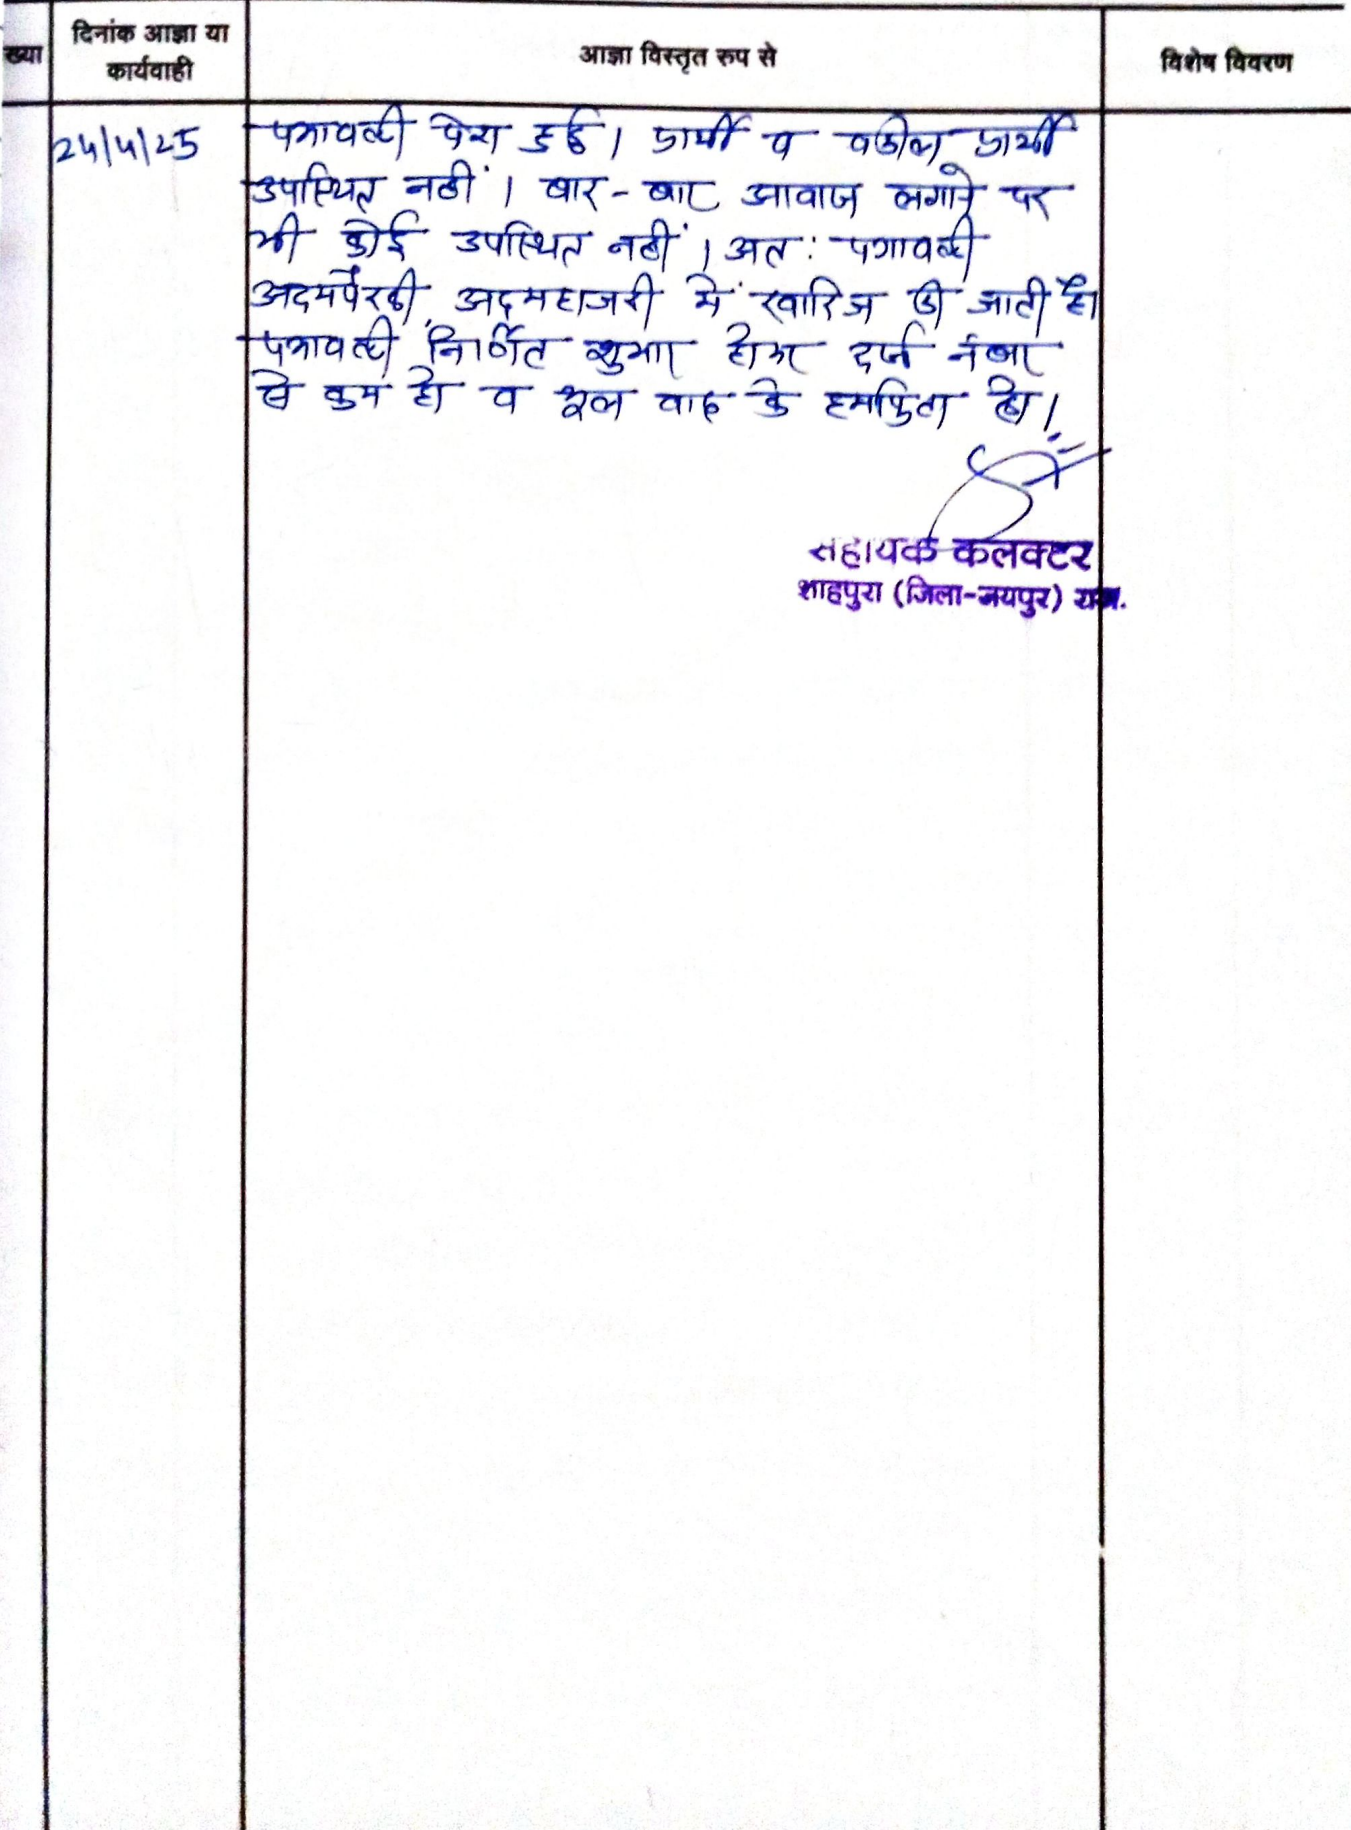 ख्या
दिनांक आज्ञा या
कार्यवाही
आज्ञा विस्तृत रुप से
विशेष विवरण
24/4/25
पत्रावली पेश हुई। प्रार्थी व वकील प्रार्थी
उपस्थित नहीं। बार-बार आवाज लगाने पर
भी कोई उपस्थित नहीं। अतः पत्रावली
अदमपैरवी, अदमहाजरी में खारिज की जाती है।
पत्रावली निर्णित शुमार होकर दर्ज नंबर
से कम हो व मूल वाद के हमफिता हो।
सहायक कलक्टर
शाहपुरा (जिला-जयपुर) राज.